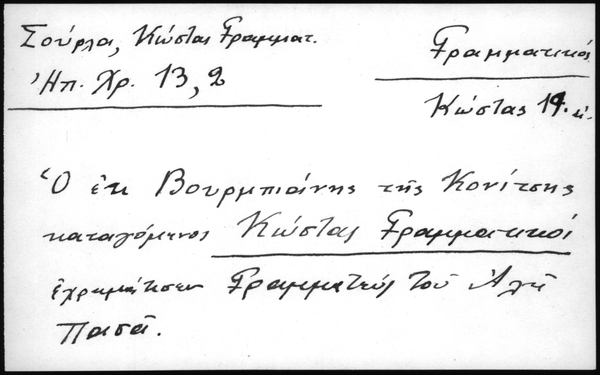 Σούρλα, Κώστας Γραμματ.
Ἠπ. Χρ. 13, 2
Γραμματικός
Κώστας 19. αἰ.
Ὁ ἐκ Βουρμπιάνης τῆς Κονίτσης
καταγόμενος Κώστας Γραμματικός
ἐχρημάτισεν Γραμματεύς τοῦ Ἀλῆ
Πασᾶ.